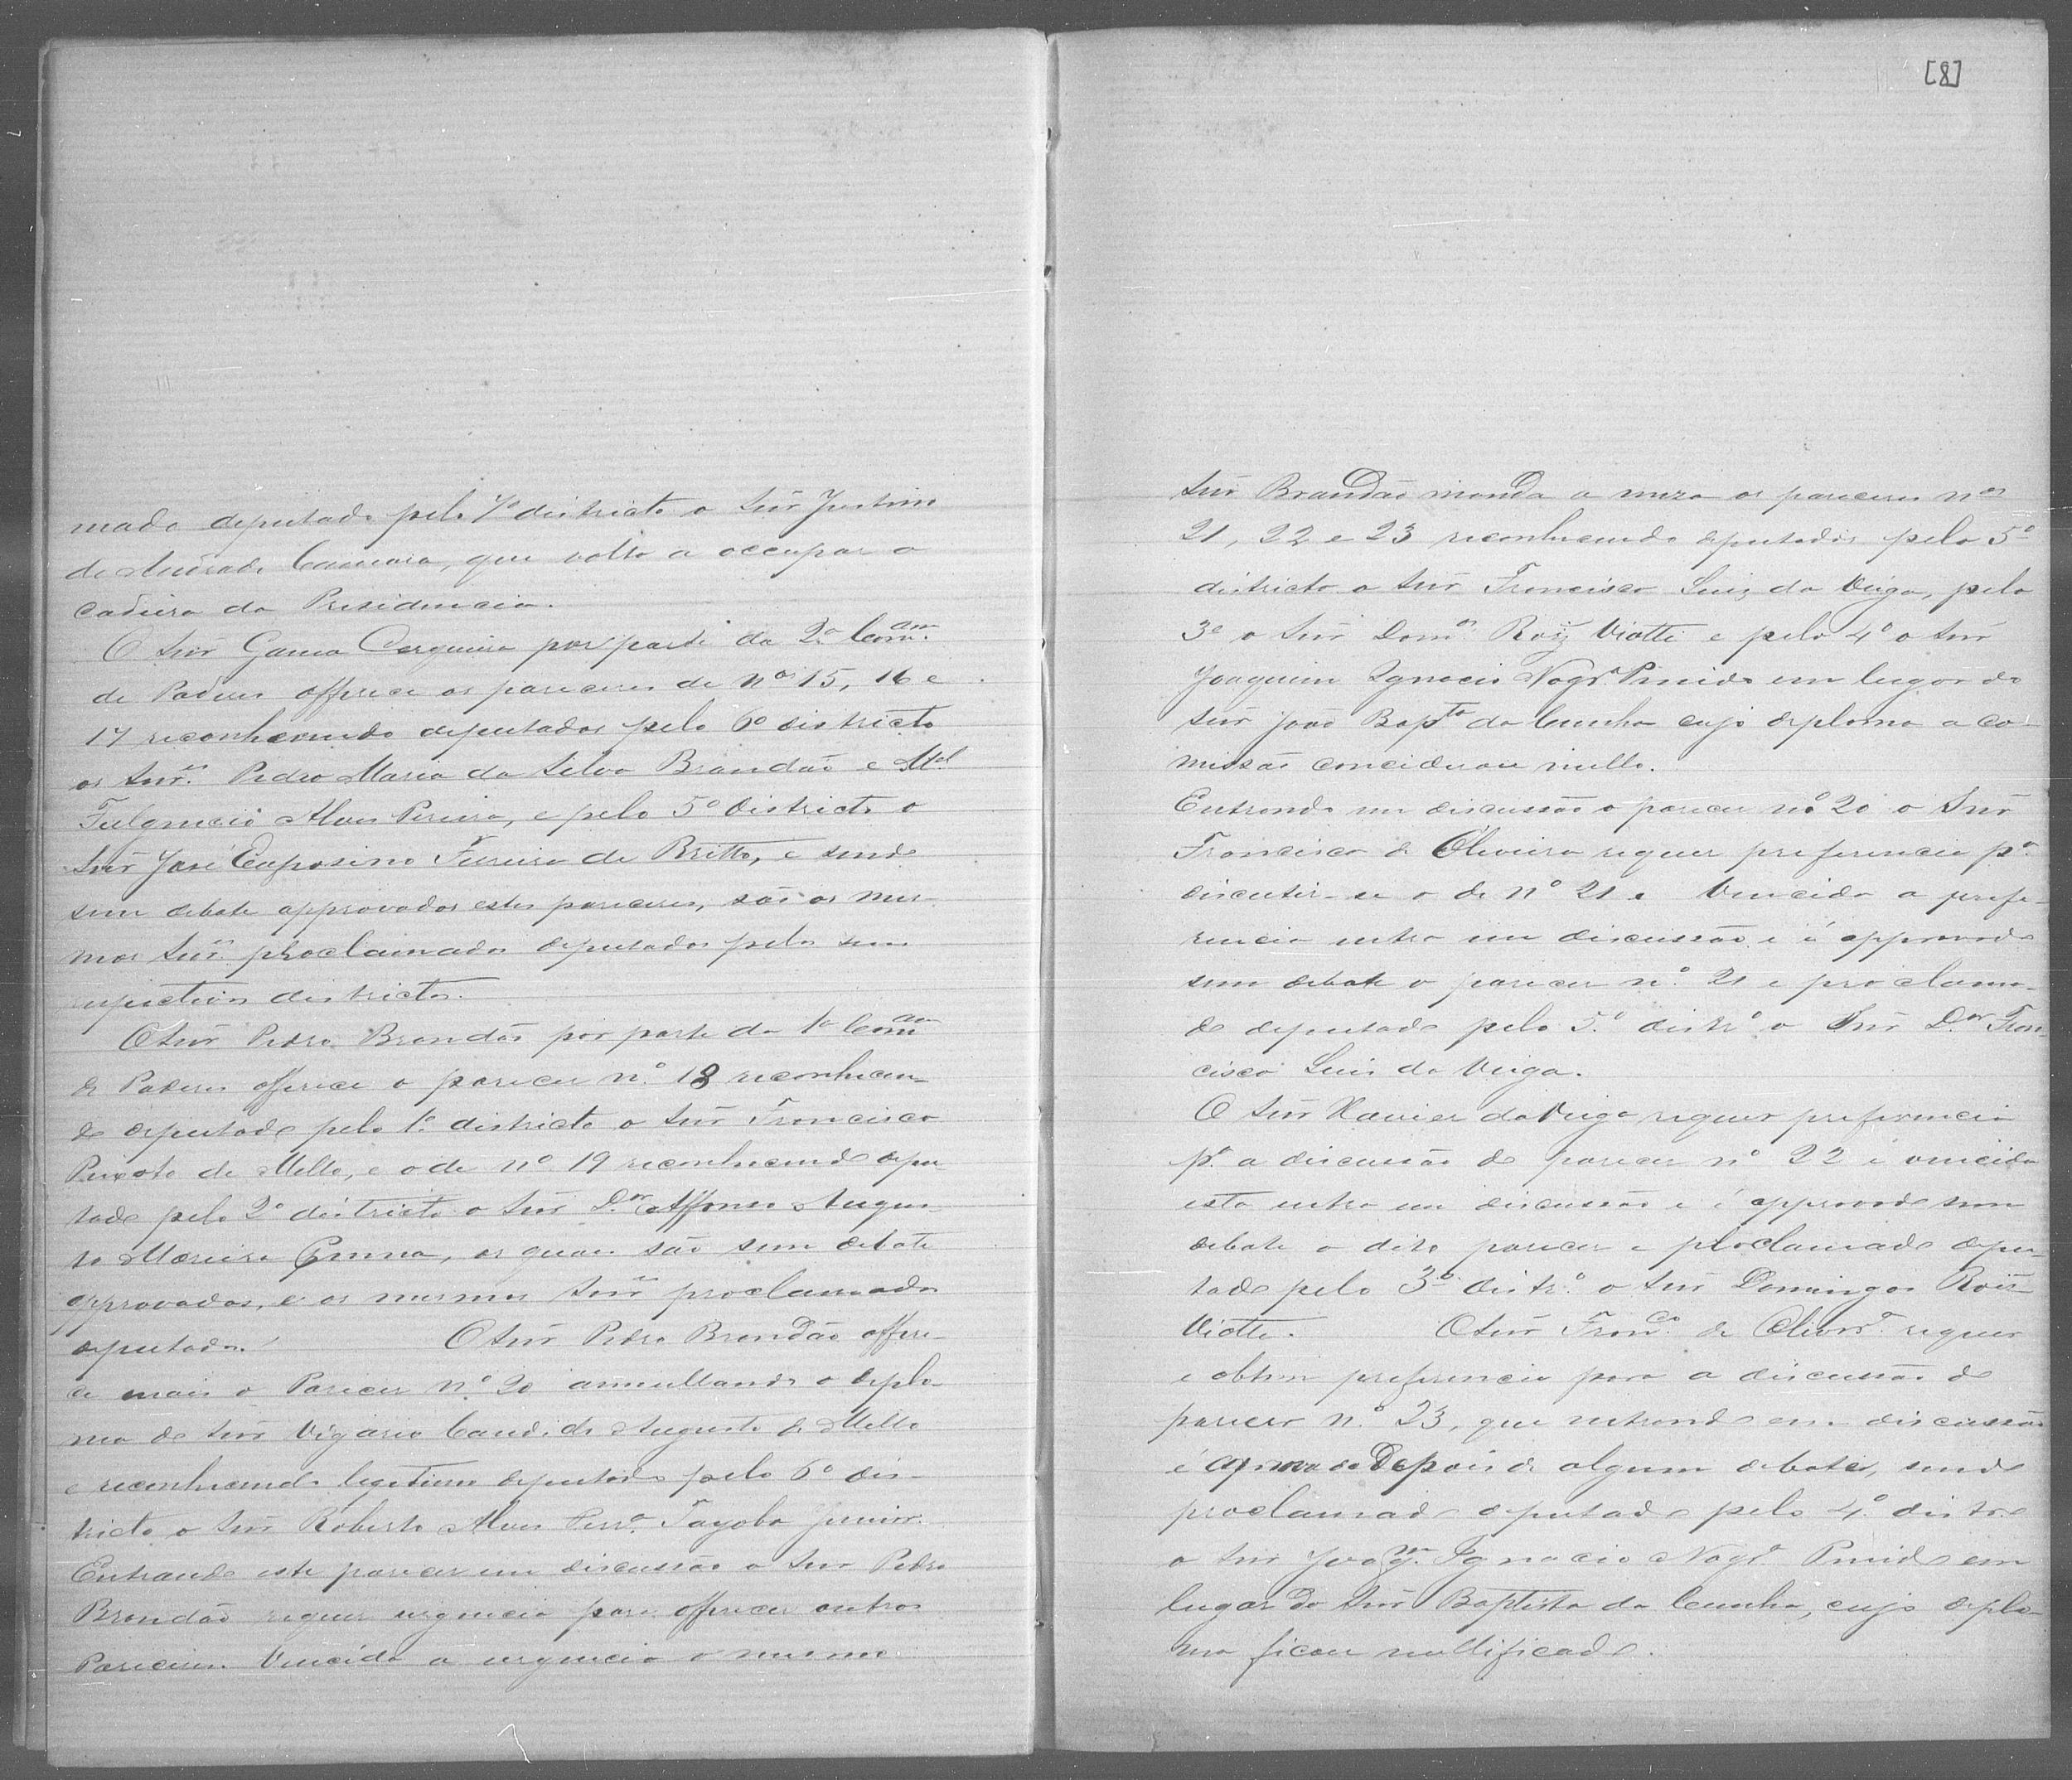 mado deputado pelo 7º districto o Snr̃ Justino
de Andrade Camara, que volta a occupar a
cadeira da Presidencia.
O Snr Gama Cerqueira por parte da 2ª Com.am
de Poderes offerece os pareceres de Nos 15, 16 e
17 reconhecendo deputados pelo 6º districto
os Snr.es Pedro Maria da Silva Brandão e Mel
Fulgencio Alves Pereira, e pelo 5º districto o
Snr̃ José Ferreira de Britto, e sendo
sem debate approvados estes pareceres, são os mes-
mos Snr.es proclamados deputados pelos seus
respectivos districtos.
O Snr̃ Pedro Brandão por parte da 1ª Com.am
de Poderes offerece o parecer n.º 18 reconhecen-
do deputado pelo 1.º districto o Snr̃ Francisco
Peixoto de Mello, e o de nº 19 reconhecendo depu-
tado pelo 2º districto o Snr̃ D.or Affonso Augus-
to Moreira Penna, os quaes são sem debate
approvados, e os mesmos Snr̃es proclamados
deputados. O Snr̃ Pedro Brandão offere-
ce mais o Parecer N.º 20 annullando o deplo-
ma do Snr̃ Vigario Candido Augusto de Mello
e reconhecendo legitimo deputado pelo 6º dis-
tricto o Snr̃ Roberto Alves Ferr.ª Tayoba Junior.
Entrando este parecer em discussão o Snr Pedro
Brandão requer urgencia para offerecer outros
Pareceres. Vencida a urgencia o mesmo
[8]
Snr̃ Brandão manda a meza os pareceres nos
21, 22 e 23 reconhecendo deputados pelo 5º
districto o Snr̃ Francisco Luiz da Veiga, pelo
3º o Snr̃ Dom.os Roiz Viotti e pelo 4º o Snr̃
Joaquim Ignacio Nogr.ª Penido em lugar do
Snr̃ João Bapt.ª da Cunha cujo deploma a co-
missão conciderou nullo.
Entrando em discussão o parecer nº 20 o Snr̃
Francisco de Oliveira requer preferencia p.ª
discutir-se o de Nº 21. Vencida a prefe-
rencia entra em discussão e é approvado
sem debate o parecer n.º 21 e proclama-
do deputado pelo 5.º distr.º o Snr̃ D.or Fran-
cisco Luis da Veiga.
O Snr̃ Xavier da Veiga requer preferencia
p.ª a discussão do parecer nº 22 e vencida
esta entra em discussão e é approvado sem
debate o dito parecer e proclamado depu-
tado pelo 3º distr.º o Snr̃ Domingos Rois
Viotti. O Snr̃ Fran.co de Olivr.ª requer
e obtem preferencia para a discussão do
parecer n.º 23, que entrando em discussão
é aprovado Depois de algum debate, sendo
proclamado deputado pelo 4.º distro
o Snr Joaq.m Ignacio Nogr.ª Penido em
lugar do Snr̃ Baptista da Cunha, cujo deplo-
ma ficou nullificado.